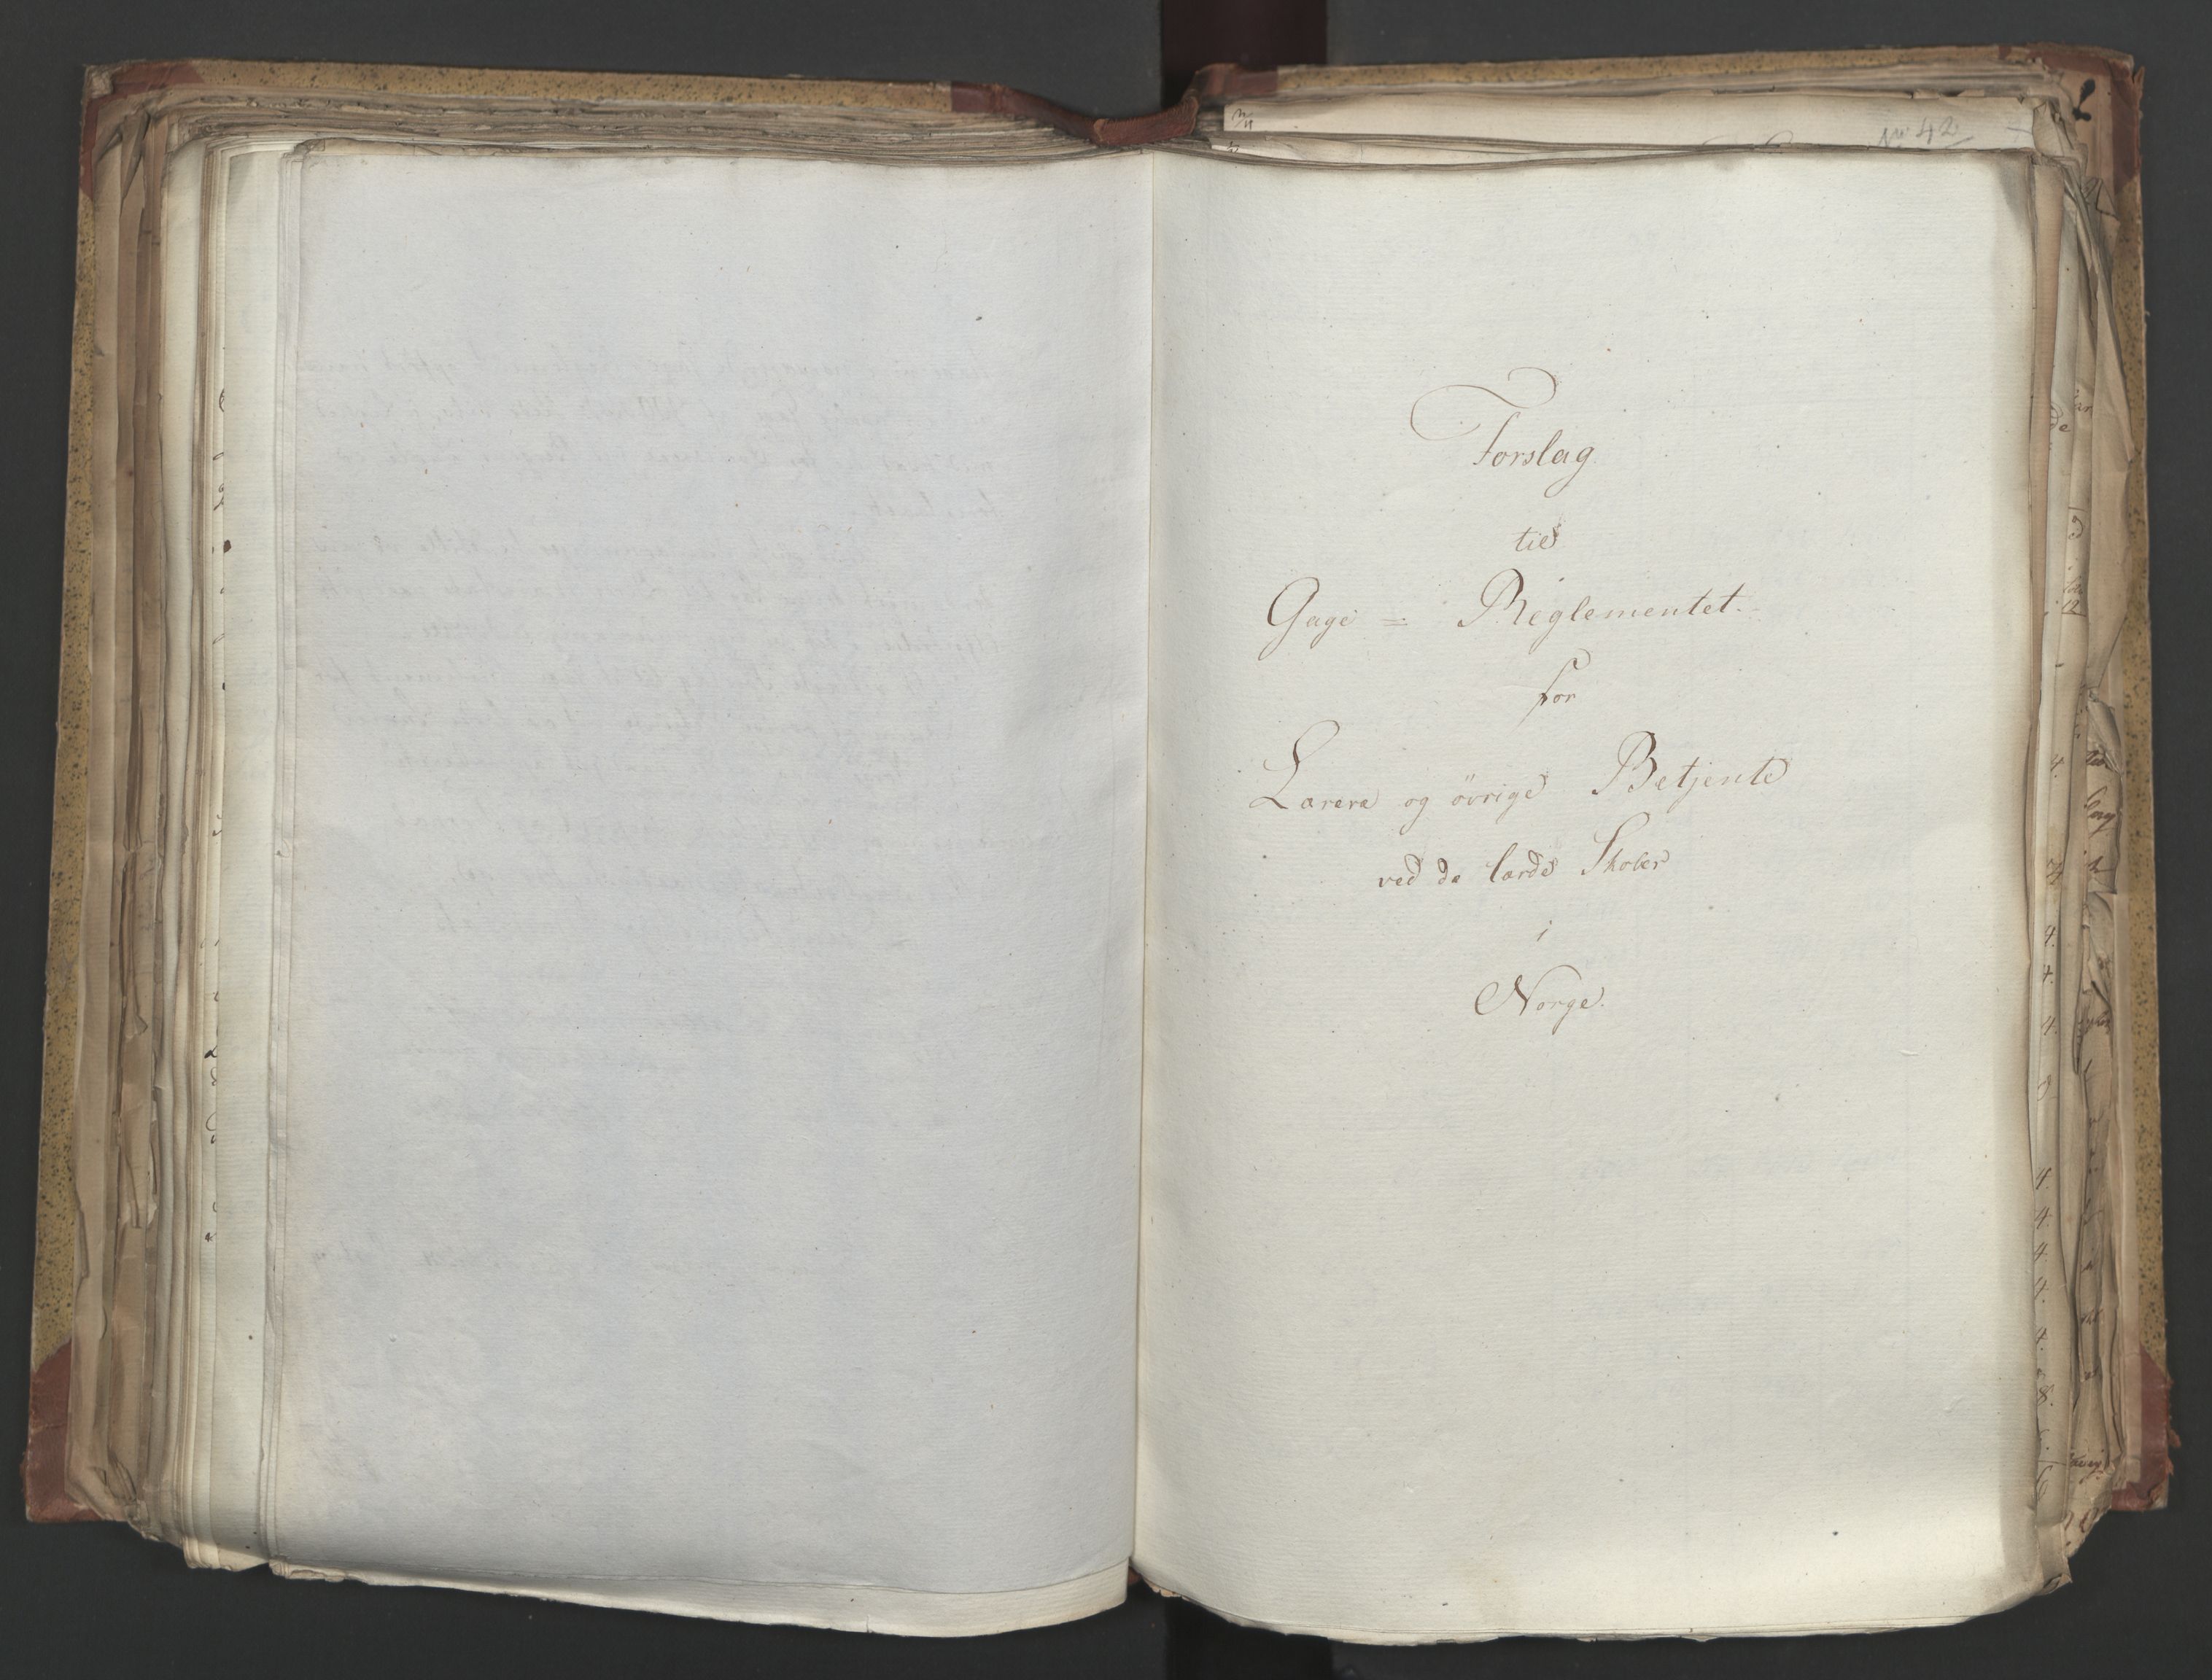 No 42
Forslag
til
Gage = Reglementet
for
Lærere og övrige Betjente
ved de lærde Skoler
i
Norge.